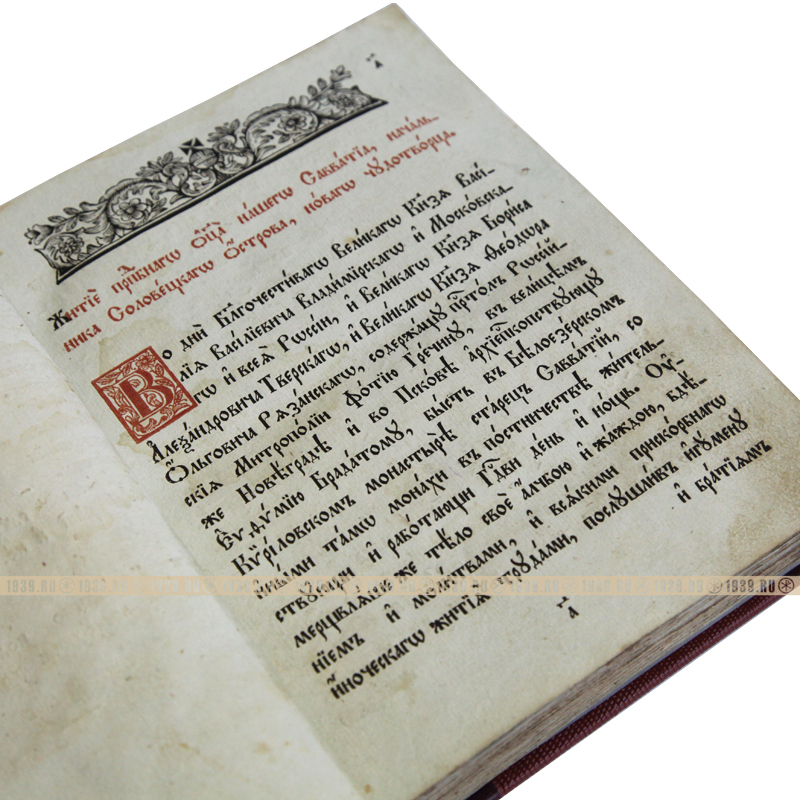 а҃
Житїѐ прпⷣбнагѡ ѻ҆ц҃а̀ на́шегѡ Савва́тїа, нача́ль-
ника Солове́цкагѡ Ѻ҆́строва, но́вагѡ чꙋдотво́рца.
Во дни̑ Бл҃гочести́вагѡ Вели́кагѡ Кн҃зѧ Васі́-
лїѧ Васі́лїевича Влади́мїрскагѡ и҆ Моско́вска-
гѡ и҆ всеѧ̀ Рѡссі́и, и҆ Вели́кагѡ Кн҃зѧ Бори́са
А҆леѯа́ндровича Тве́рскагѡ, и҆ Вели́кагѡ Кн҃зѧ Ѳео́дѡра
Ѻ҆́льговича Рѧза́нскагѡ, содержа́щꙋ прⷭ҇то́лъ Рѡссі́й-
скїѧ Митропо́лїи Фо́тїю Гре́чинꙋ, въ вели́цѣмъ
же Новѣ́градѣ и҆ во Пско́вѣ а҆рхїепⷭ҇копствꙋющꙋ
Є҆ѵѳѵ́мїю Брада́томꙋ, бы́сть въ Бѣлоезе́рскомъ
Кѵрі́ловскомъ монастырѣ̀ ста́рецъ Савва́тїй, со
и҆ны́ми та́мѡ мона́хи въ по́стничествѣ жи́тель-
ствꙋѧй и҆ рабо́таѧй гдⷭ҇ви де́нь и҆ но́щь. Оу҆-
мерщвлѧ́ѧше же тѣ́ло своѐ а҆́лчбою и҆ жа́ждою, бдѣ́-
нїемъ и҆ моли́твами, и҆ всѧ́кими прико́рбнагѡ
и҆́ноческагѡ житїѧ̀ трꙋда́ми, послꙋшли́въ и҆гꙋ́менꙋ
и҆ бра́тїѧмъ
а҃
1939.RU